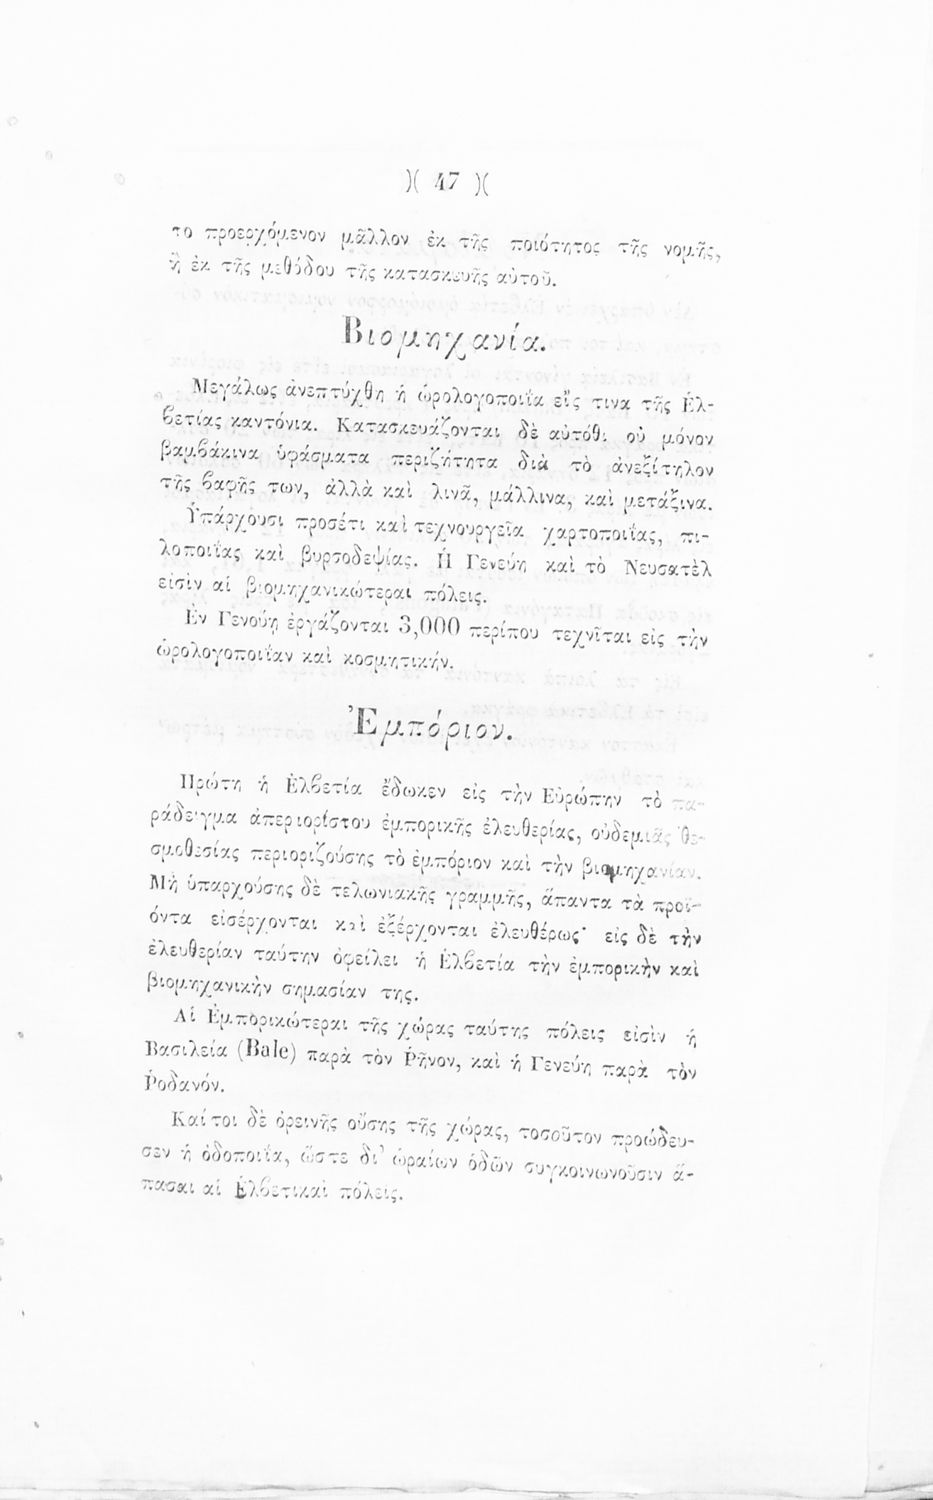 )( 47 )(
το προερχόμενον μᾶλλον ἐκ τῆς ποιότητος τῆς νομῆς,
ἢ ἐκ τῆς μεθόδου τῆς κατασκευῆς αὐτοῦ.
Βιομηχανία.
Μεγάλως ἀνεπτύχθη ἡ ὡρολογοποιΐα εἴς τινα τῆς Ἑλ-
βετίας καντόνια. Κατασκευάζονται δὲ αὐτόθι οὐ μόνον
βαμβάκινα ὑφάσματα περιζήτητα διὰ τὸ ἀνεξίτηλον
τῆς βαφῆς των, ἀλλὰ καὶ λινᾶ, μάλλινα, καὶ μετάξινα.
Ὑπάρχουσι προσέτι καὶ τεχνουργεῖα χαρτοποιΐας, πι-
λοποιΐας καὶ βυρσοδεψίας. Ἡ Γενεύη καὶ τὸ Νευσατὲλ
εἰσὶν αἱ βιομηχανικώτεραι πόλεις.
Ἐν Γενούῃ ἐργάζονται 3,000 περίπου τεχνῖται εἰς τὴν
ὡρολογοποιΐαν καὶ κοσμητικήν.
Ἐμπόριον.
Πρώτη ἡ Ἑλβετία ἔδωκεν εἰς τὴν Εὐρώπην τὸ πα-
ράδειγμα ἀπεριορίστου ἐμπορικῆς ἐλευθερίας, οὐδεμιᾶς θε-
σμοθεσίας περιοριζούσης τὸ ἐμπόριον καὶ τὴν βιομηχανίαν.
Μὴ ὑπαρχούσης δὲ τελωνιακῆς γραμμῆς, ἅπαντα τὰ προϊ-
όντα εἰσέρχονται καὶ ἐξέρχονται ἐλευθέρως· εἰς δὲ τὴν
ἐλευθερίαν ταύτην ὀφείλει ἡ Ἑλβετία τὴν ἐμπορικὴν καὶ
βιομηχανικὴν σημασίαν της.
Αἱ Ἐμπορικώτεραι τῆς χώρας ταύτης πόλεις εἰσὶν ἡ
Βασιλεία (Bale) παρὰ τὸν Ῥῆνον, καὶ ἡ Γενεύη παρὰ τὸν
Ῥοδανόν.
Καί τοι δὲ ὀρεινῆς οὔσης τῆς χώρας, τοσοῦτον προώδευ-
σεν ἡ ὁδοποιΐα, ὥστε δι' ὡραίων ὁδῶν συγκοινωνοῦσιν ἅ-
πασαι αἱ Ἑλβετικαὶ πόλεις.